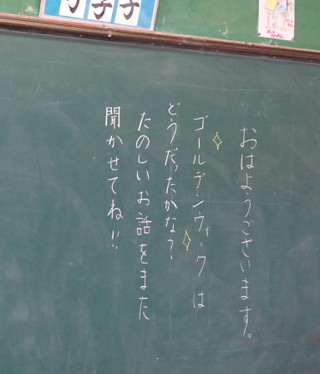 おはようございます。
ゴールデンウィークは
どうだったかな?
たのしいお話をまた
聞かせてね!!